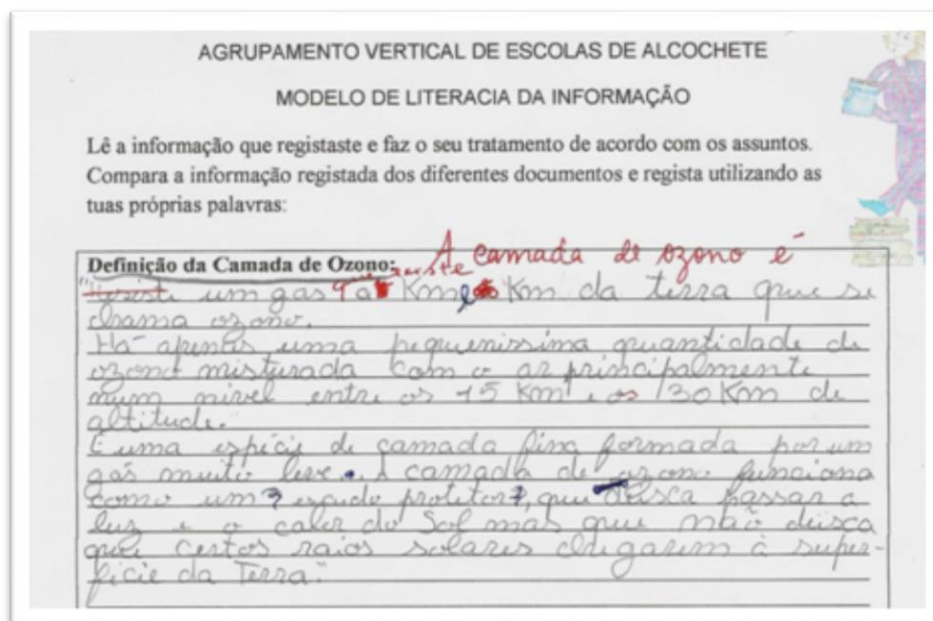 AGRUPAMENTO VERTICAL DE ESCOLAS DE ALCOCHETE
MODELO DE LITERACIA DA INFORMAÇÃO
Lê a informação que registaste e faz o seu tratamento de acordo com os assuntos.
Compara a informação registada dos diferentes documentos e regista utilizando as
tuas próprias palavras:
Definição da Camada de Ozono: A camada de ozono é
um gas Km Km da terra que se
chama ozono.
Há apenas uma pequeníssima quantidade de
ozono misturada com o ar principalmente
num nivel entre os 15 Km e os 30 Km de
altitude.
É uma espécie de camada fina formada por um
gás muito leve. A camada de ozono funciona
como um escudo protetor, que deisca passar a
luz e o calor do Sol mas que não deisca
que certos raios solares chegarem à super-
ficie da Terra."